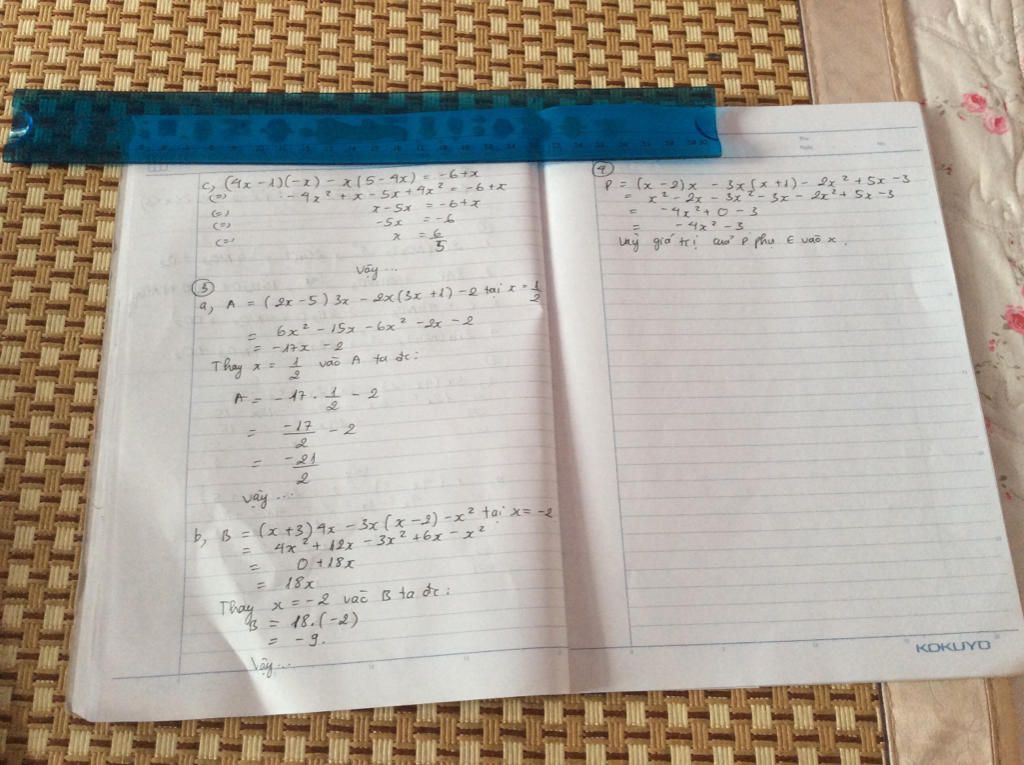 c, (4x-1)(-x) - x(5-4x) = -6+x
(=) -4x² + x - 5x + 4x² = -6+x
(=) x - 5x = -6+x
(=) -5x = -6
(=) x = 6/5
Vậy...
③
a, A = (2x-5)3x - 2x(3x+1) - 2 tại x = 1/2
= 6x² - 15x - 6x² - 2x - 2
= -17x - 2
Thay x = 1/2 vào A ta đc:
A = -17 . 1/2 - 2
= -17/2 - 2
= -21/2
Vậy...
b, B = (x+3)4x - 3x(x-2) - x² tại x = -2
= 4x² + 12x - 3x² + 6x - x²
= 0 + 18x
= 18x
Thay x = -2 vào B ta đc:
B = 18.(-2)
= -9.
Vậy...
④
P = (x-2)x - 3x(x+1) - 2x² + 5x - 3
= x² - 2x - 3x² - 3x - 2x² + 5x - 3
= -4x² + 0 - 3
= -4x² - 3
Vậy giá trị của P phụ ∈ vào x.
KOKUYO